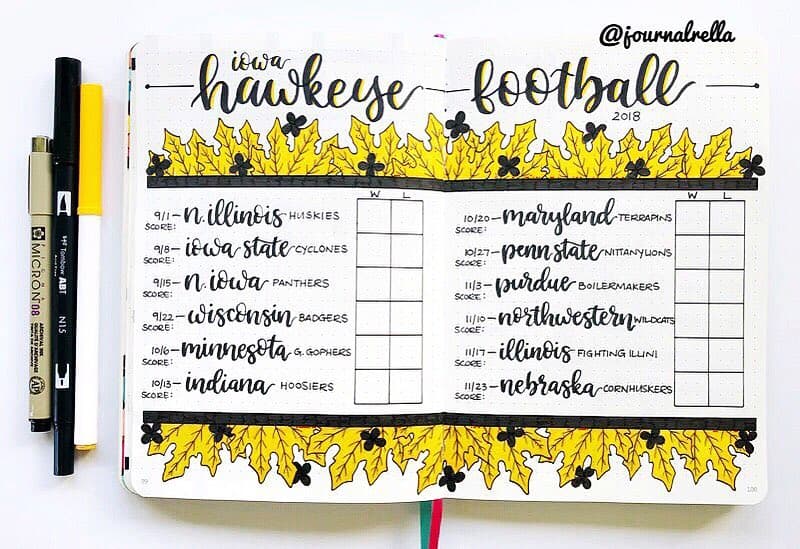 @journalrella
iowa
hawkeye football
2018
W L
9/1 - n. illinois HUSKIES
SCORE:
9/8 - iowa state CYCLONES
SCORE:
9/15 - n. iowa PANTHERS
SCORE:
9/22 - wisconsin BADGERS
SCORE:
10/6 - minnesota G. GOPHERS
SCORE:
10/13 - indiana HOOSIERS
SCORE:
W L
10/20 - maryland TERRAPINS
SCORE:
10/27 - penn state NITTANY LIONS
SCORE:
11/3 - purdue BOILERMAKERS
SCORE:
11/10 - northwestern WILDCATS
SCORE:
11/17 - illinois FIGHTING ILLINI
SCORE:
11/23 - nebraska CORNHUSKERS
SCORE:
99
100
MICRON 08
Tombow ABT
N15